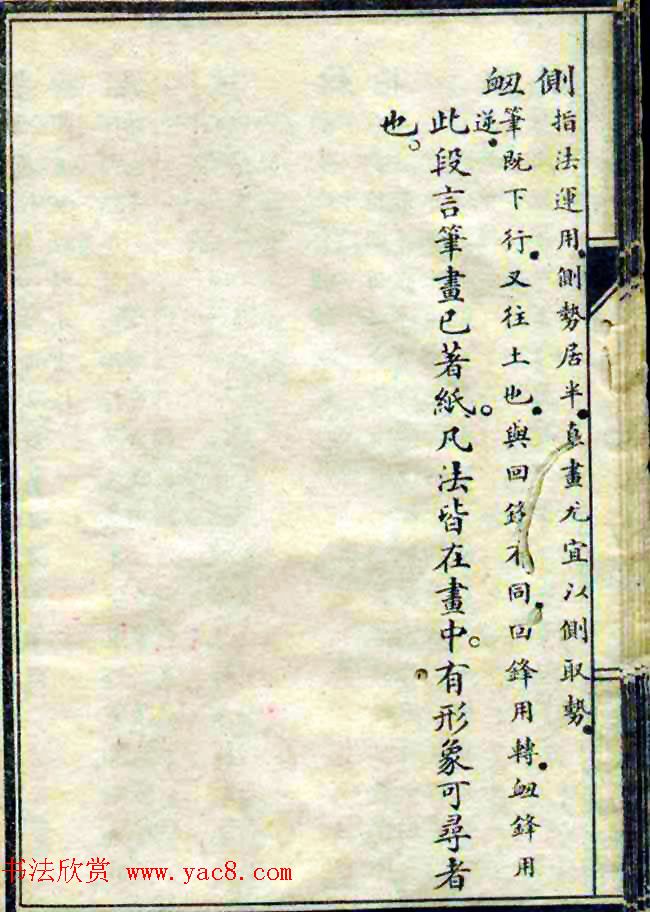 側指法運用側勢居半直畫尤宜以側取勢
衄筆既下行又往土也與回鋒不同回鋒用轉衄鋒用
逆
此段言筆畫已著紙。凡法皆在畫中。有形象可尋者
也。
书法欣赏 www.yac8.com